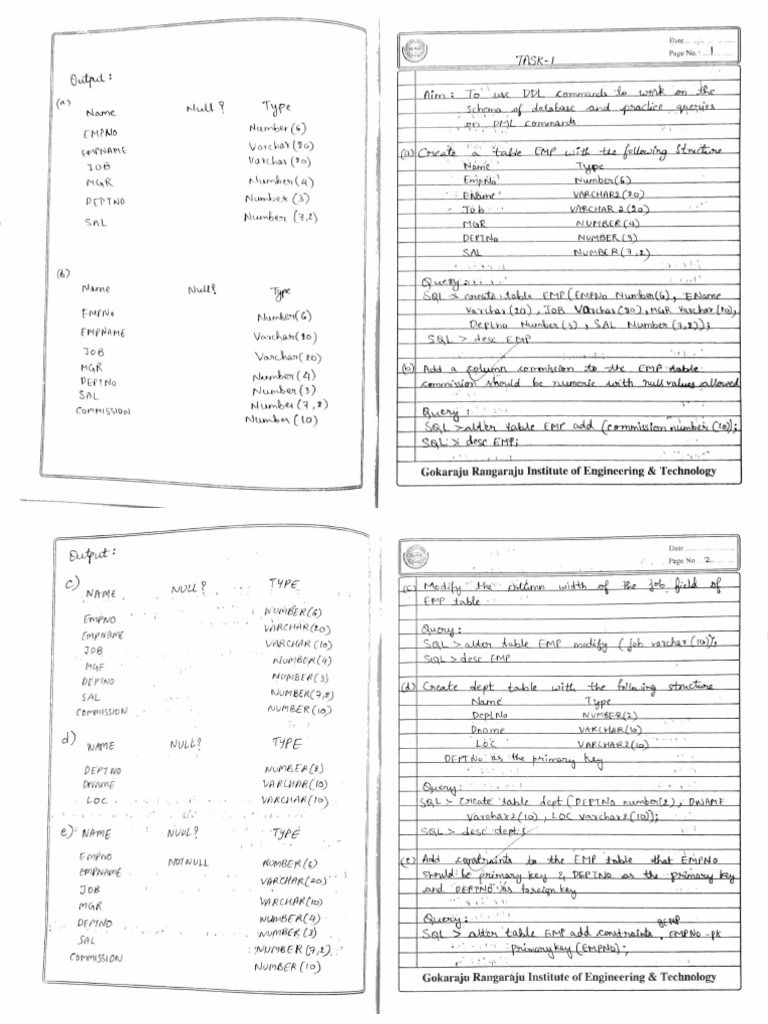 Output:
(a)
Name Null? Type
EMPNO Number(6)
EMPNAME Varchar(20)
JOB Varchar(20)
MGR Number(4)
DEPTNO Number(3)
SAL Number(7,2)
(b)
Name Null? Type
EMPNO Number(6)
EMPNAME Varchar(20)
JOB Varchar(20)
MGR Number(4)
DEPTNO Number(3)
SAL Number(7,2)
COMMISSION Number(10)
Date
Page No. 1
TASK-1
Aim: To use DDL commands to work on the
schema of database and practice queries
on DML commands
(a) Create a table EMP with the following structure
Name Type
EmpNo Number(6)
EName VARCHAR2(20)
Job VARCHAR2(20)
MGR NUMBER(4)
DEPTNo NUMBER(3)
SAL NUMBER(7,2)
Query:
SQL > create table EMP(EMPNo Number(6), EName
varchar(20), JOB varchar(20), MGR varchar(20),
Deptno Number(3), SAL Number(7,2));
SQL > desc EMP
(b) Add a column commission to the EMP table
commission should be numeric with null values allowed
Query:
SQL > alter table EMP add (commission number(10));
SQL > desc EMP;
Gokaraju Rangaraju Institute of Engineering & Technology
Output:
c) NAME NULL? TYPE
EMPNO NUMBER(6)
EMPNAME VARCHAR(20)
JOB VARCHAR(10)
MGF NUMBER(4)
DEPTNO NUMBER(3)
SAL NUMBER(7,2)
COMMISSION NUMBER(10)
d) NAME NULL? TYPE
DEPTNO NUMBER(2)
DNAME VARCHAR(10)
LOC VARCHAR(10)
e) NAME NULL? TYPE
EMPNO NOTNULL NUMBER(6)
EMPNAME VARCHAR(20)
JOB VARCHAR(10)
MGR NUMBER(4)
DEPTNO NUMBER(3)
SAL NUMBER(7,2)
COMMISSION NUMBER(10)
Date
Page No 2
(c) Modify the column width of the job field of
EMP table
Query:
SQL > alter table EMP modify (job varchar(10));
SQL > desc EMP
(d) Create dept table with the following structure
Name Type
DeptNo NUMBER(2)
Dname VARCHAR(10)
LOC VARCHAR2(10)
DEPTNo as the primary key
Query:
SQL > create table dept (DEPTNo number(2), DNAME
varchar2(10), LOC varchar2(10));
SQL > desc dept;
(e) Add constraints to the EMP table that EMPNO
should be primary key & DEPTNO as the primary key
and DEPTNO as foreign key
Query:
SQL > alter table EMP add constraints EMPNO-PK
primary key (EMPNO);
Gokaraju Rangaraju Institute of Engineering & Technology